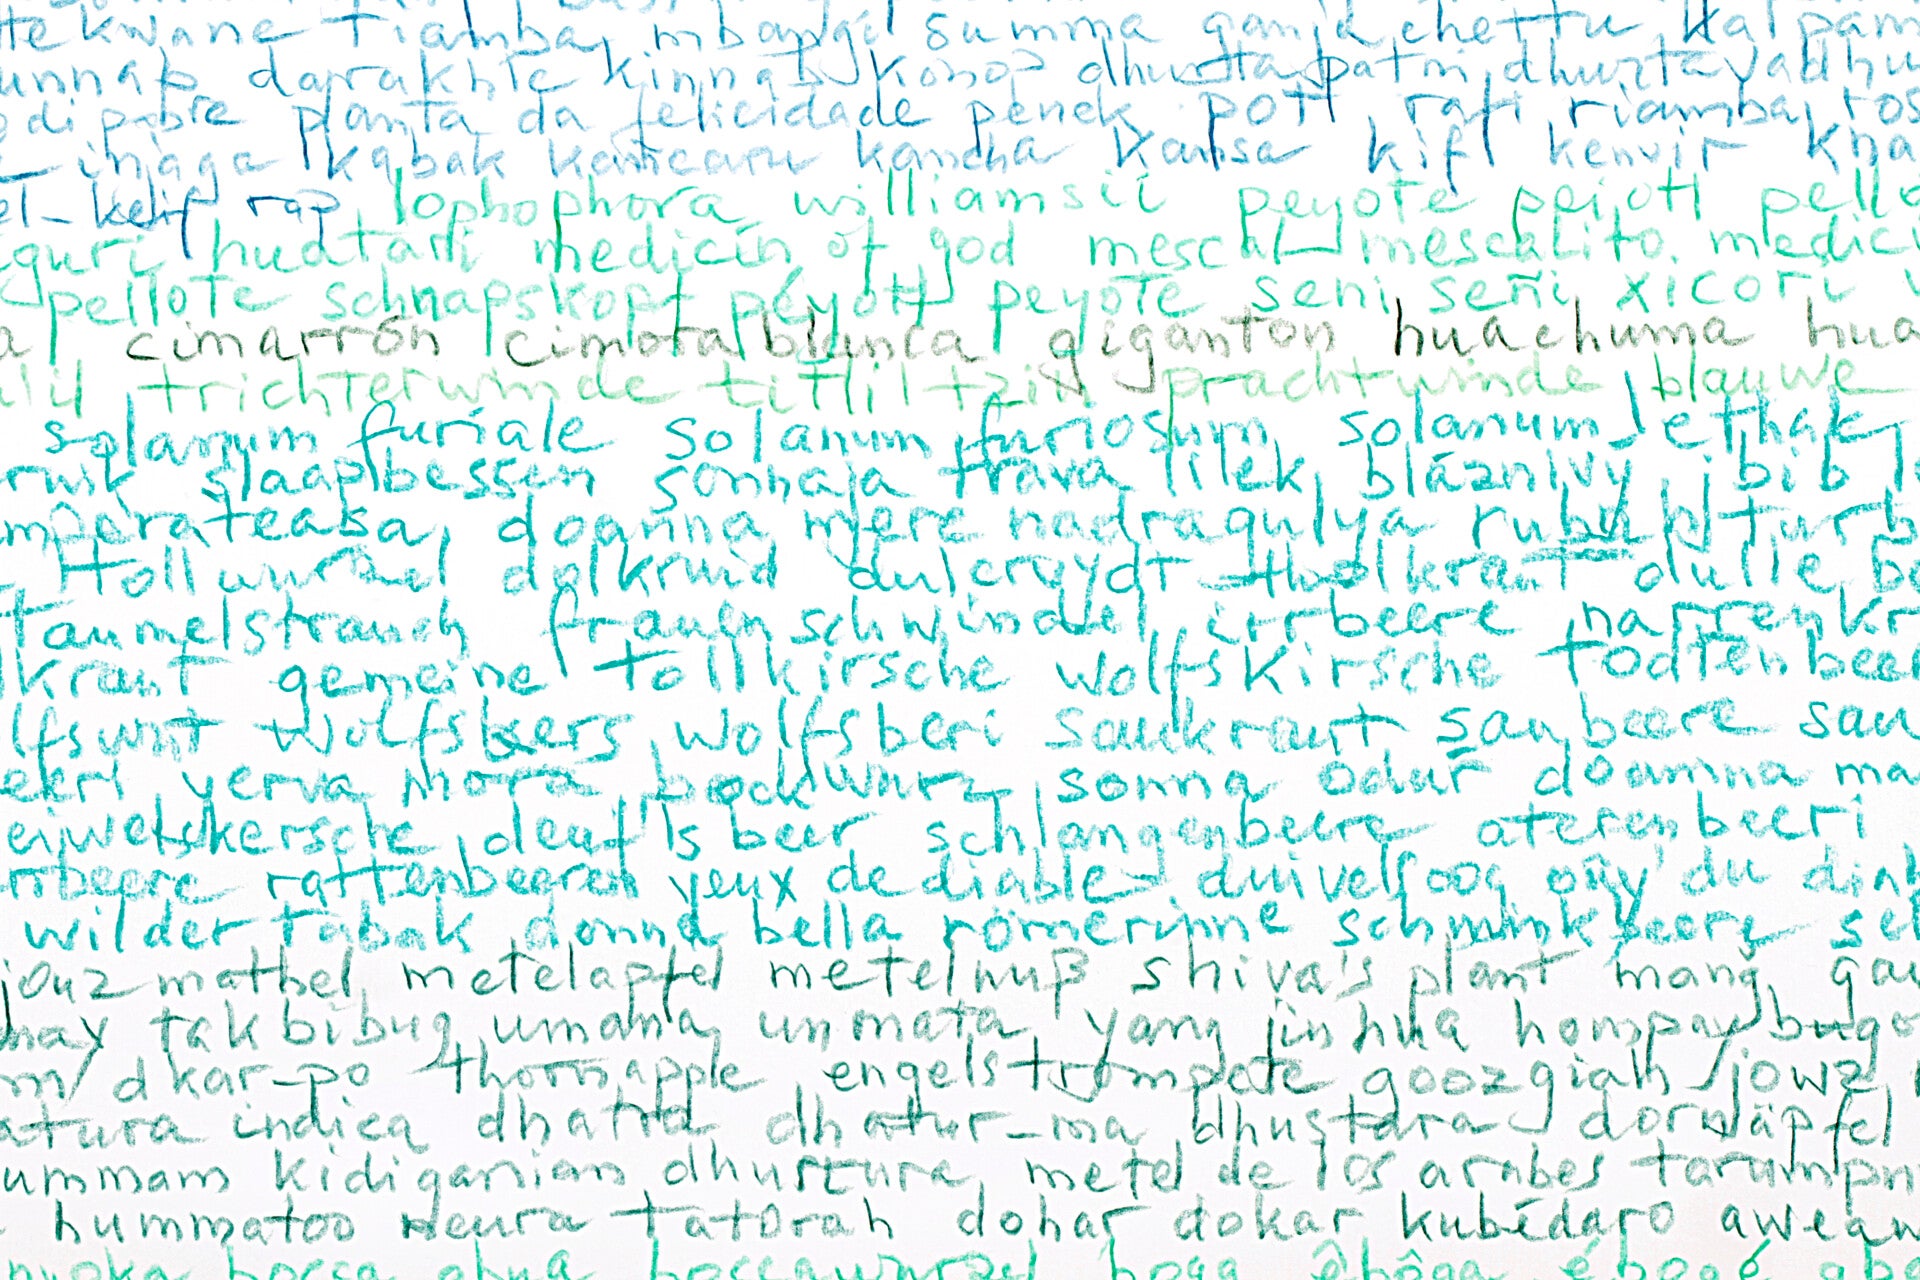 tekwane tiamba mbangi summa ganja chettu kalpam
unnab darakhte kinnab konop dhurta patni dhurta yabdhu
planta da felicidade penek poti rafi riamba ros
injaga kabak kanicaru kancha kansa kif kenvir kha
el-keif rap lophophora williamsii peyote pejotl pello
guri huatari medicin of god mescal mescalito medici
pellote schnapskopf péyotl peyote seni señi xicori
a cimarrón cimora blanca giganton huachuma hua
lil trichterwinde titliltzin prachtwinde blauwe
solanum furiale solanum furiosum solanum lethale
slaapbessen sonnaja trava lilek bláznivý bib
mparateasa doamna mere nadragulya
tollwurzel dolkruid dulcruydt thollkraut dulle be
taumelstrauch frauenschwindel irrbeere narrenkr
lkraut gemeine tollkirsche wolfskirsche todtenbeer
lfswut wolfsbeers wolfsberi saukraut saubeere sau
eeri yerva mora bockwurz sonna odur doamna ma
deuf'ls beer schlangenbeere aterenbeeri
rattenbeeren yeux de diable duivelsoog
wilder tabak donna bella römerinne schminkbeere sch
jouz mathel metelapfel metelnuß shiva's plant mang gau
may takbibug umana unmata yang jinhua hompay bugo
m dkar-po thornapple engelstrompete goozgiah jowz
atura indica dhatra dhatur-ma dhustara dornäpfel
ummam kidiganian dhurtura metel de los arabes tarumpn
hummatoo neura tatorah dohar dokar kubédaro aweaw